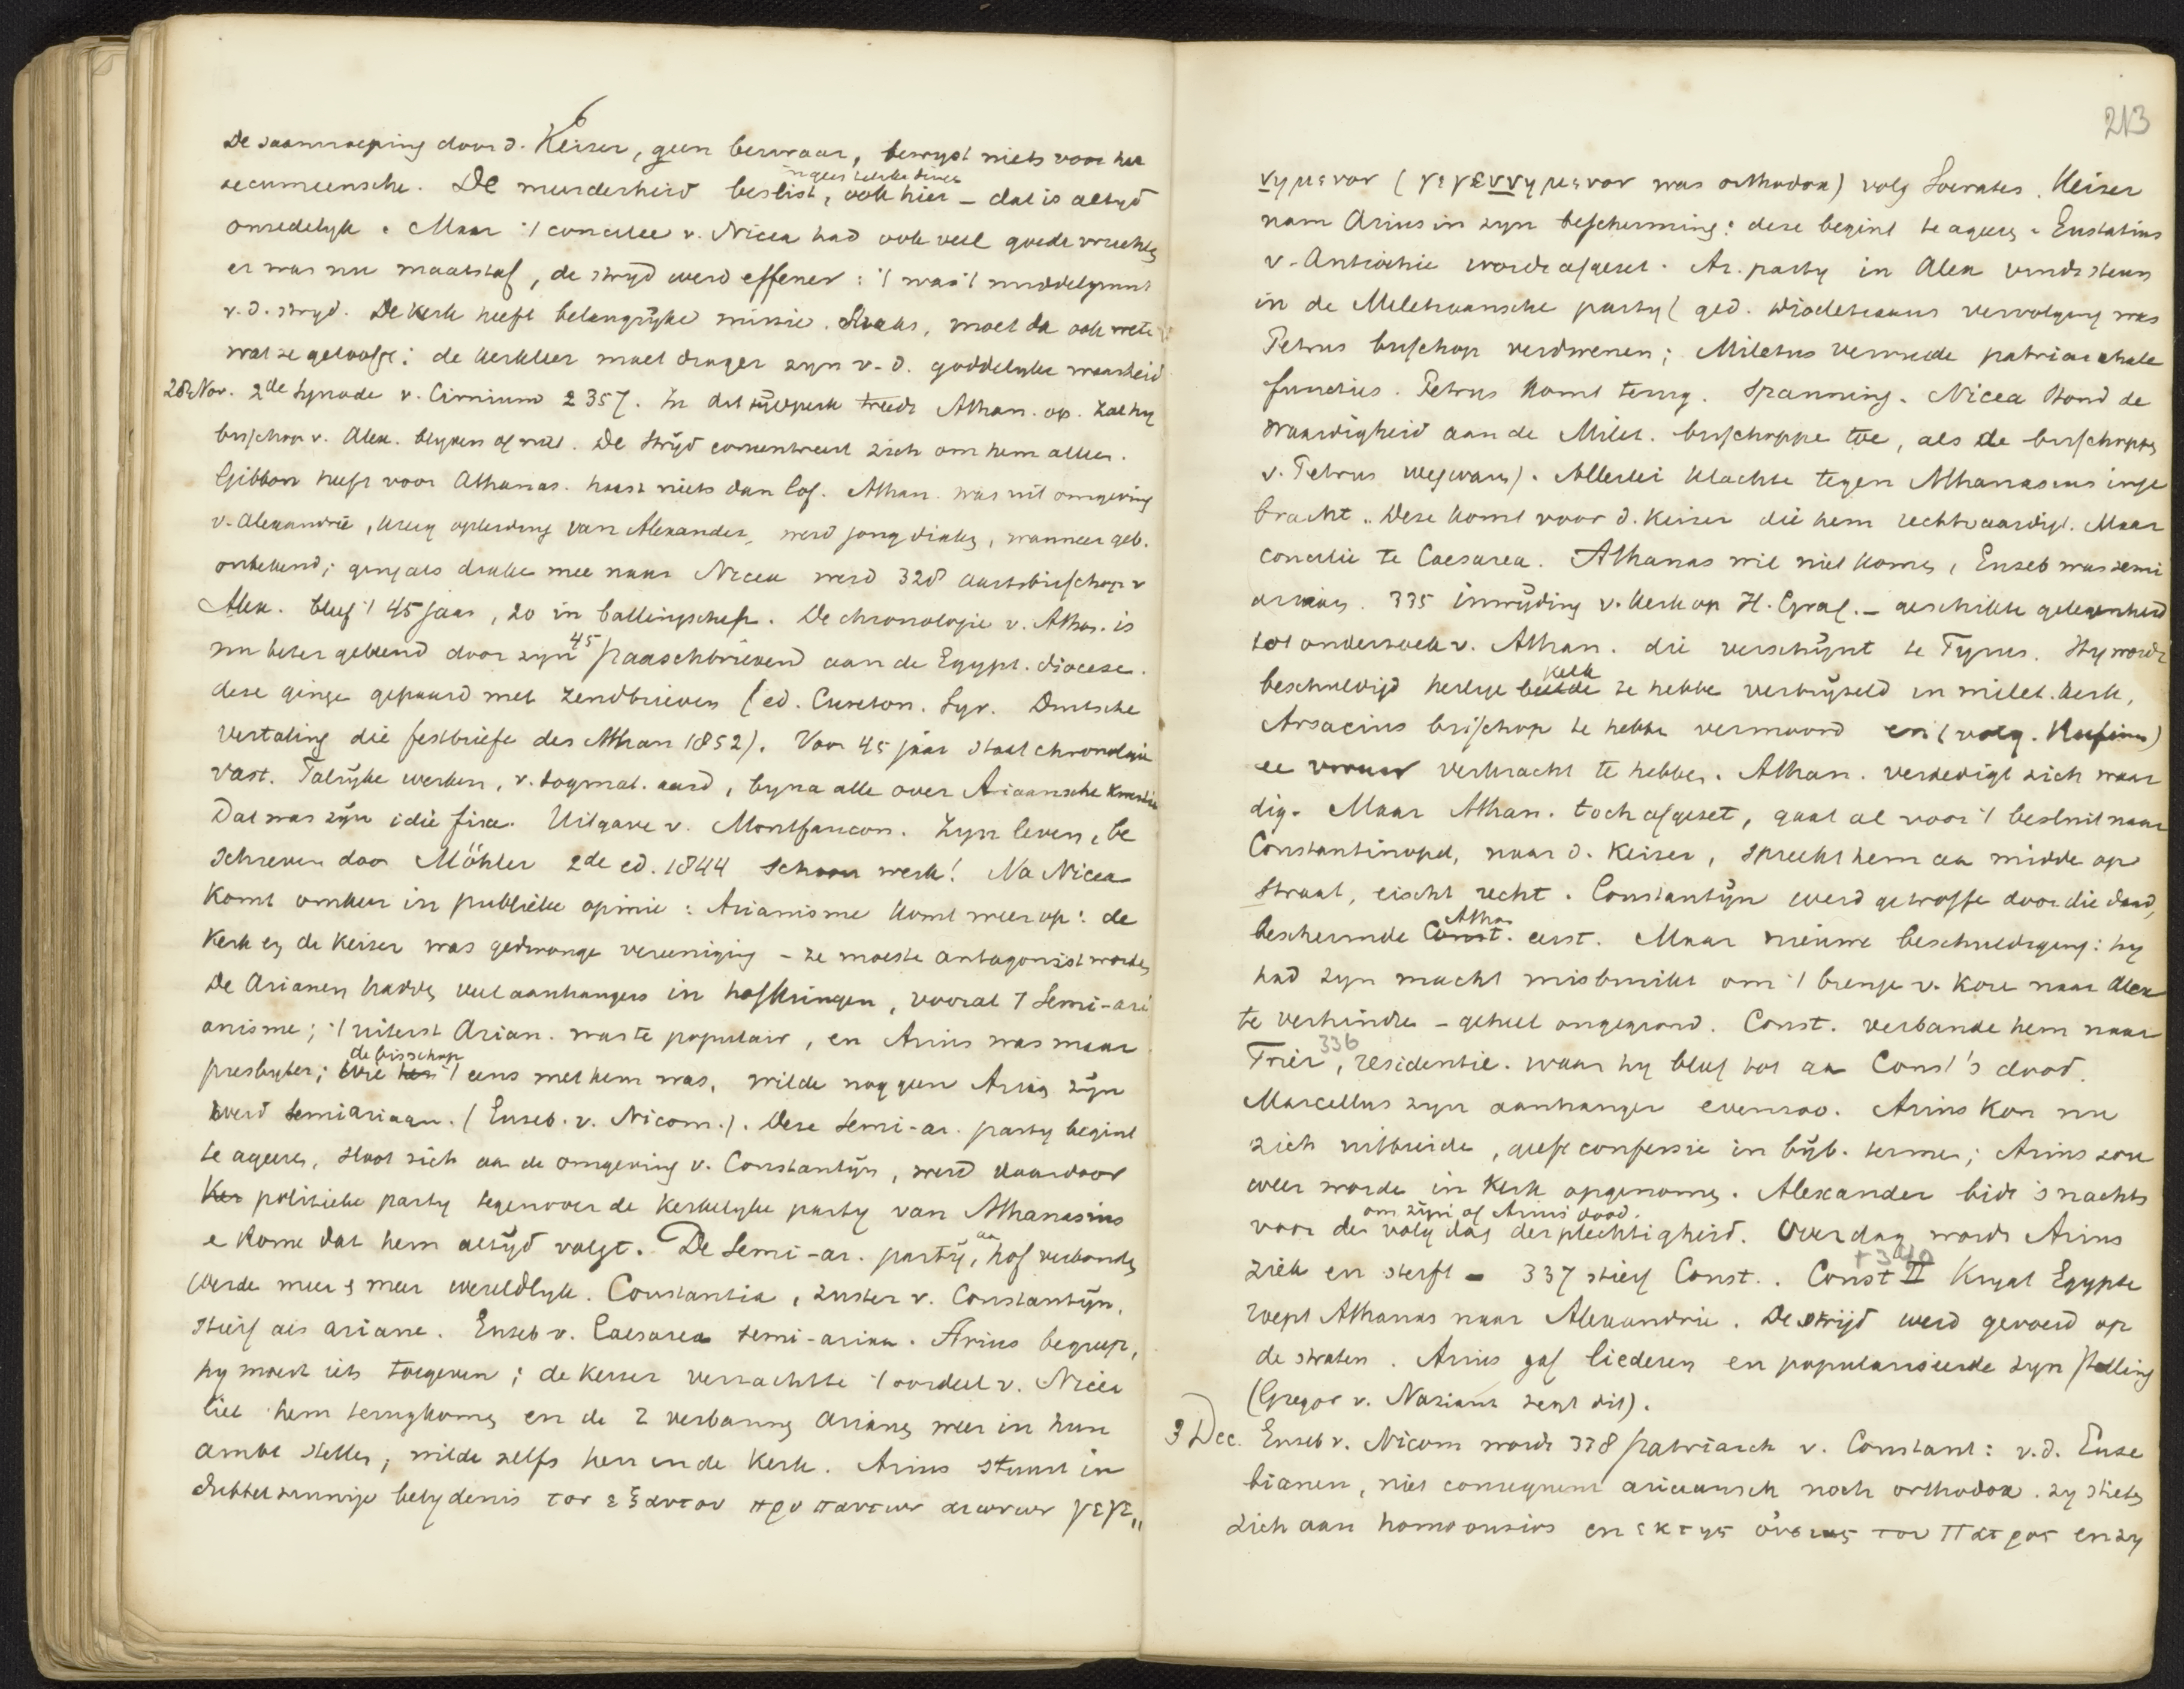 6
De saamroeping door d. Keiser, geen bezwaar, bewyst niets voor het
oecumeensche. De meerderheid beslist, ook hier – dat is altyd
in geestelyke dingen
onzedelyk. Maar 't concilie v. Nicea had ook veel goede vruchten
er was nu maatstaf, de stryd werd effener: 't was 't middelpunt
v. d. stryd. De kerk heeft belangrijke missie. Straks, moet da ook wete
wat ze geloofe; de kerkleer moet drager zyn v. d. goddelyke waarheid
28 Nov. 2de Synode v. Cirmium 2 357. In dat tijdperk treedt Athan. op. Zal hy
bisschop v. Alex. blyven of niet. De strijd consentreert zich om hem alleen.
Gibbon heeft voor Athanas. haast niets dan lof. Athan. was uit omgeving
v. Alexandrië, kreeg opleiding van Alexander, werd jong diaken, wanneer geb.
onbekend; ging als diake mee naar Nicea werd 328 aartsbisschop v
Alex. bleef 't 45 jaar, 20 in ballingschap. De chronologie v. Athan. is
nu beter gekend door zyn 45 paaschbrieven aan de Egypt. diocese.
deze ginge gepaard met zendbrieven (ed. Cureton. Syr. Duitsche
vertaling die festbriefe des Athan 1852). Voor 45 jaar staat chronologie
vast. Talrijke werken, v. dogmat. aard, byna alle over Ariaansche kwestie
Dat was zijn idée fixe. Uitgave v. Montfaucon. Zyn leven, be
schreven door Möhler 2de ed. 1844 schoon werk! Na Nicea
komt omkeer in publieke opinie: Arianisme komt weer op: de
Kerk en de Keiser was gedwonge vereeniging – ze moeste antagonist worden
De Arianen hadden veel aanhangers in hofkringen, vooral 't Semi-ari
anisme; 't uiterst Arian. was te populair, en Arius was maar
presbyter; de bisschop die 't eens met hem was, wilde nog geen Arian zijn
werd semiariaan. (Euseb. v. Nicom.). Deze semi-ar. party begint
te ageeren, sloot zich aa de omgeving v. Constantijn, werd daardoor
Ker politieke party tegenover de kerkelyke party van Athanasius
e Rome dat hem altijd volgt. De semi-ar. partij, aa hof verbonden
werde meer & meer wereldlyk. Constantia, zuster v. Constantijn,
stierf als ariane. Euseb v. Caesarea semi-ariaa. Arius begreep,
hy moest iets toegeven; de keiser verzachtte 't oordeel v. Nicea
liet hem terugkomen en de 2 verbannen arianen weer in hun
ambt stellen, wilde zelfs hem in de Kerk. Arius stuurt in
dubbelzinnige belydenis τον εξ αυτου προ παντων αιωνων γεγε„
213
νημενον (γεγεννημενον was orthodox) volg Socrates. Keiser
nam Arius in zyn bescherming: deze begint te ageeren. Eustatius
v. Antiochie wordt afgezet. Ar. party in Alex vindt steun
in de Miletiaansche party (ged. Diocletiaans vervolging was
Petrus bisschop verdwenen; Miletus vervulde patriarchale
functies. Petrus komt terug. Spanning. Nicea stond de
waardigheid aan de Milet. bisschoppe toe, als de bisschoppen
v. Petrus weg waren). Allerlei klachte tegen Athanasius inge
bracht. Deze komt voor d. Keiser die hem rechtvaardigt. Maar
concilie te Caesarea. Athanas wil niet komen, Euseb was semi
ariaan. 335 inwijding v. kerk op H. Graf. – geschikte gelegenheid
tot onderzoek v. Athan. die verschijnt te Tyrus. Hy wordt
beschuldigd heilige beelde kelk te hebbe verbrijzeld in milet. kerk,
Arsacius bisschop te hebbe vermoord en (volg. Rufinus)
ee vrouw verkracht te hebben. Athan. verdedigt zich waar
dig. Maar Athan. toch afgezet, gaat al voor 't besluit naar
Constantinopel, naar d. Keiser, spreekt hem aa midde op
straat, eischt recht. Constantijn werd getroffe door die daad,
beschermde Const. Atha. eerst. Maar nieuwe beschuldiging: hy
had zyn macht misbruikt om 't brenge v. Kore naar Alex
te verhindre – geheel ongegrond. Const. verbande hem naar
Trier, 336 residentie. waar hy bleef tot aa Const's dood.
Marcellus zyn aanhanger evenzoo. Arius kon nu
zich uitbreide, geeft confessie in bijb. termen; Arius zou
weer worde in Kerk opgenomen. Alexander bidt 's nachts
om zijn of Arius' dood.
voor de volg dag der plechtigheid. Overdag wordt Arius
ziek en sterft – 337 stierf Const.. Const II † 340 krygt Egypte
roept Athanas naar Alexandrie. De strijd werd gevoerd op
de straten. Arius gaf liederen en populariseerde zyn stelling
(Gregor v. Nazianz zegt dit).
3 Dec. Euseb v. Nicom wordt 338 patriarch v. Constant: v. d. Euse
bianen, niet consequent ariaansch noch orthodox. zy stieten
zich aan homoousios en εκ της ουσιας του Πατρος en zy